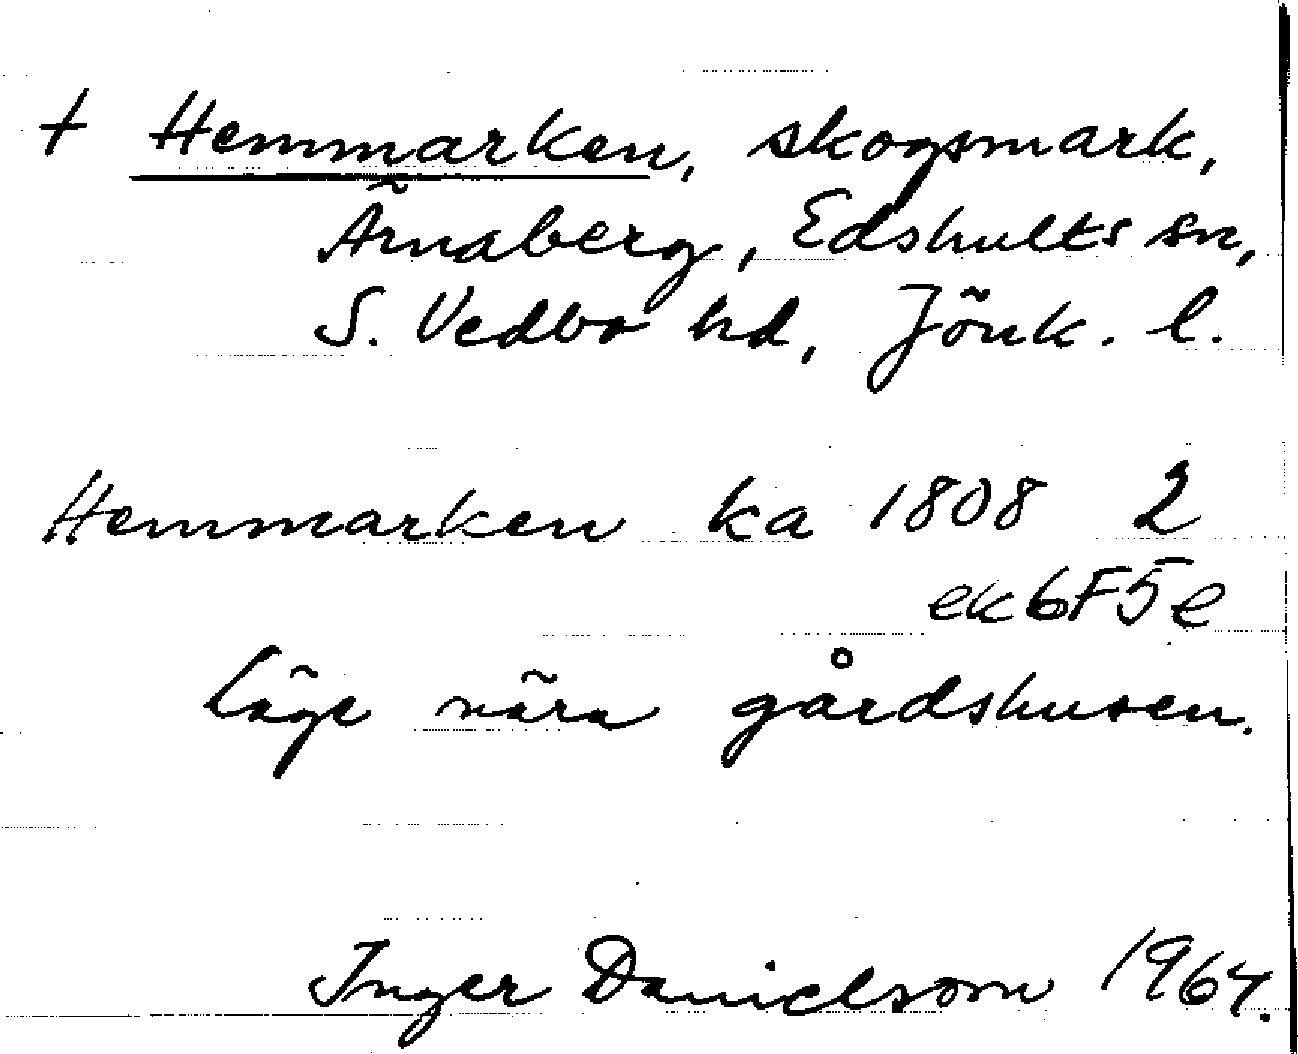 + Hemmarken, skogsmark,
Ärnaberg, Edshults sn,
S. Vedbo hd, Jönk. l.
Hemmarken ka 1808 2
ek 6F5e
Läge nära gårdshusen.
Inger Danielsson 1964.